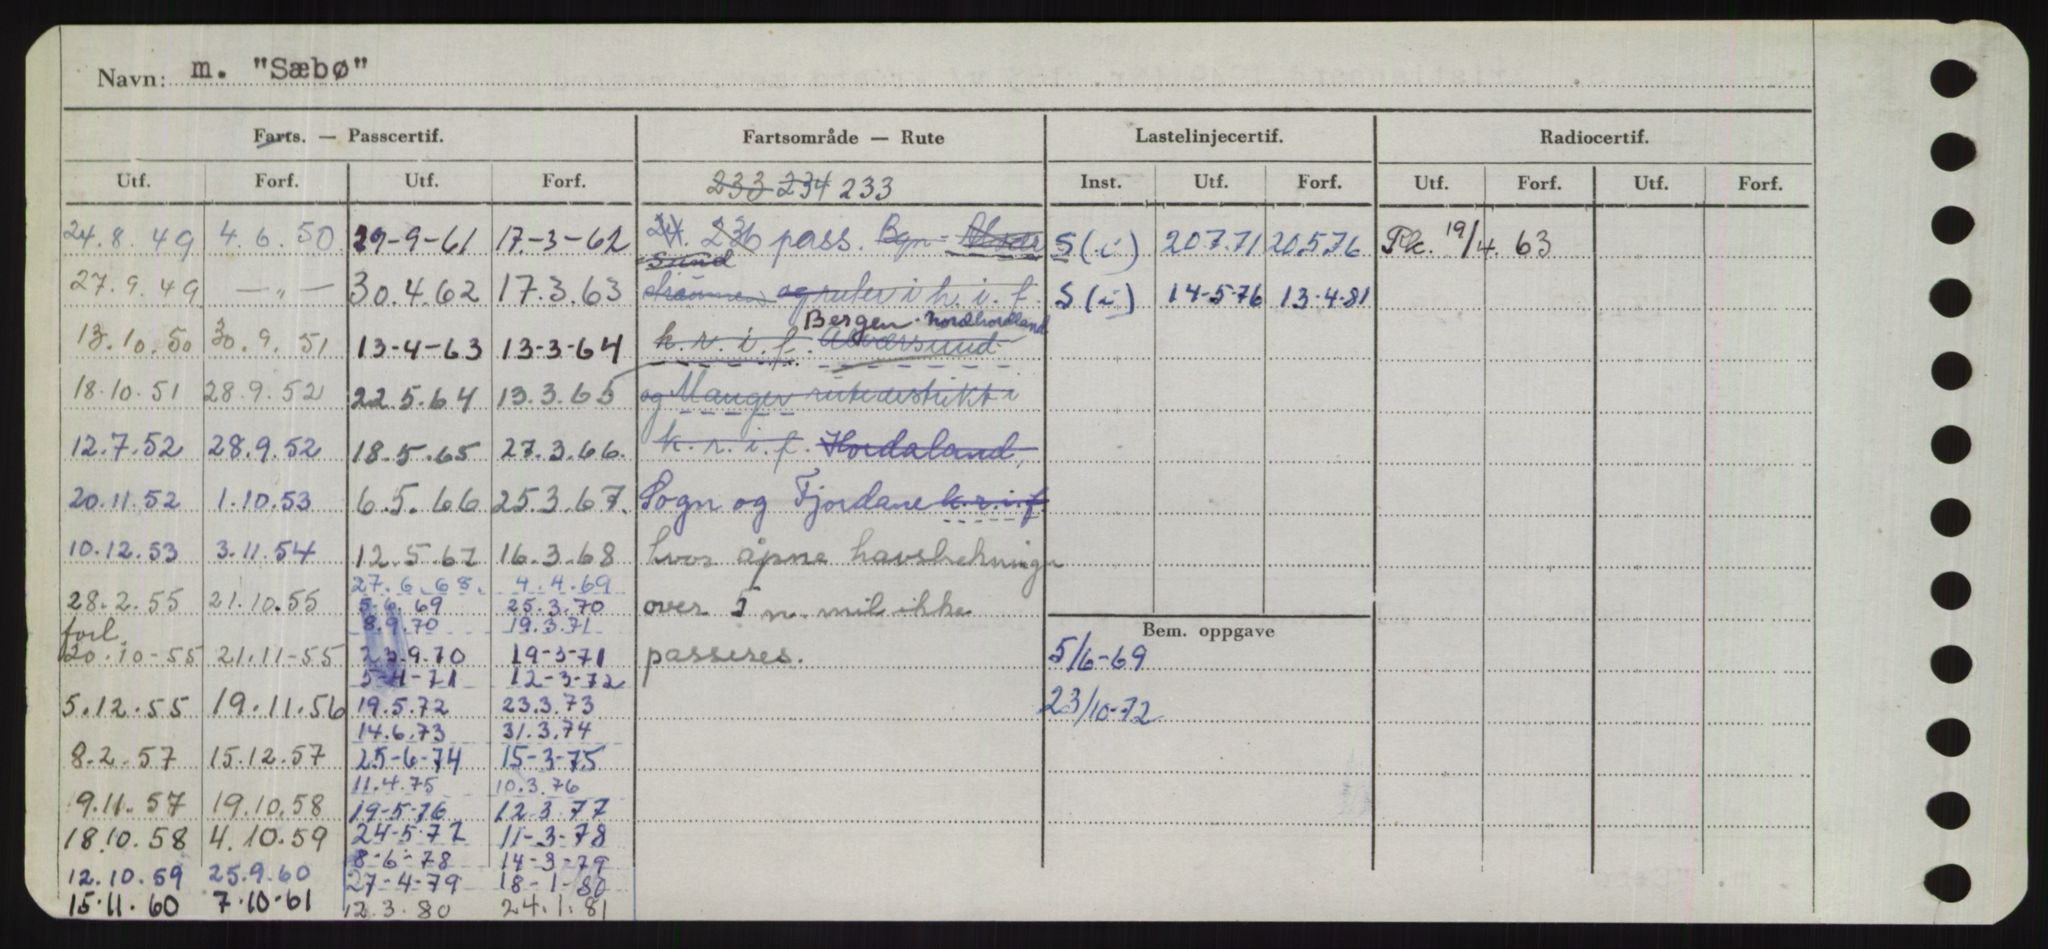 Navn: m. "Sæbø"
Farts. — Passcertif. Fartsområde — Rute Lastelinjecertif. Radiocertif.
Utf. Forf. Utf. Forf. 233 234 233 Inst. Utf. Forf. Utf. Forf. Utf. Forf.
24.8.49 4.6.50 29-9-61 17-3-62 236 pass. Bgn - S (i) 20.7.71 20.5.76 Rk. 19/4. 63
sund
27.9.49 — " — 30.4.62 17.3.63 og ruter i h. i. f. S (i) 14-5-76 13-4-81
Bergen - Nordhordland
13.10.50 30.9.51 13-4-63 13-3-64 k.r.i.f. Alversund
18.10.51 28.9.52 22.5.64 13.3.65 og Manger rutedistrikt i
12.7.52 28.9.52 18.5.65 27.3.66. k.r.i.f. Hordaland,
20.11.52 1.10.53 6.5.66 25.3.67. Sogn og Fjordane k.r.i.f
10.12.53 3.11.54 12.5.67 16.3.68 hvor åpne havstrekninger
27.6.68. 4.4.69
28.2.55 21.10.55 5.6.69 25.3.70 over 5 n. mil ikke
forl. 8.9.70 19.3.71 Bem. oppgave
20.10-55 21.11-55 23.9.70 19-3-71 passeres. 5/6-69
5-4-71 12-3-72
5.12.55 19.11.56 19.5.72 23.3.73 23/10-72
14.6.73 31.3.74
8.2.57 15.12.57 25-6-74 15-3-75
11.4.75 10.3.76
9.11.57 19.10.58 19-5-76 12.3.77
18.10.58 4.10.59 24-5-77 11-3-78
8-6-78 14-3-79
12.10.59 25.9.60 27-4-79 18-1-80
15.11.60 7.10-61 12.3.80 24.1.81